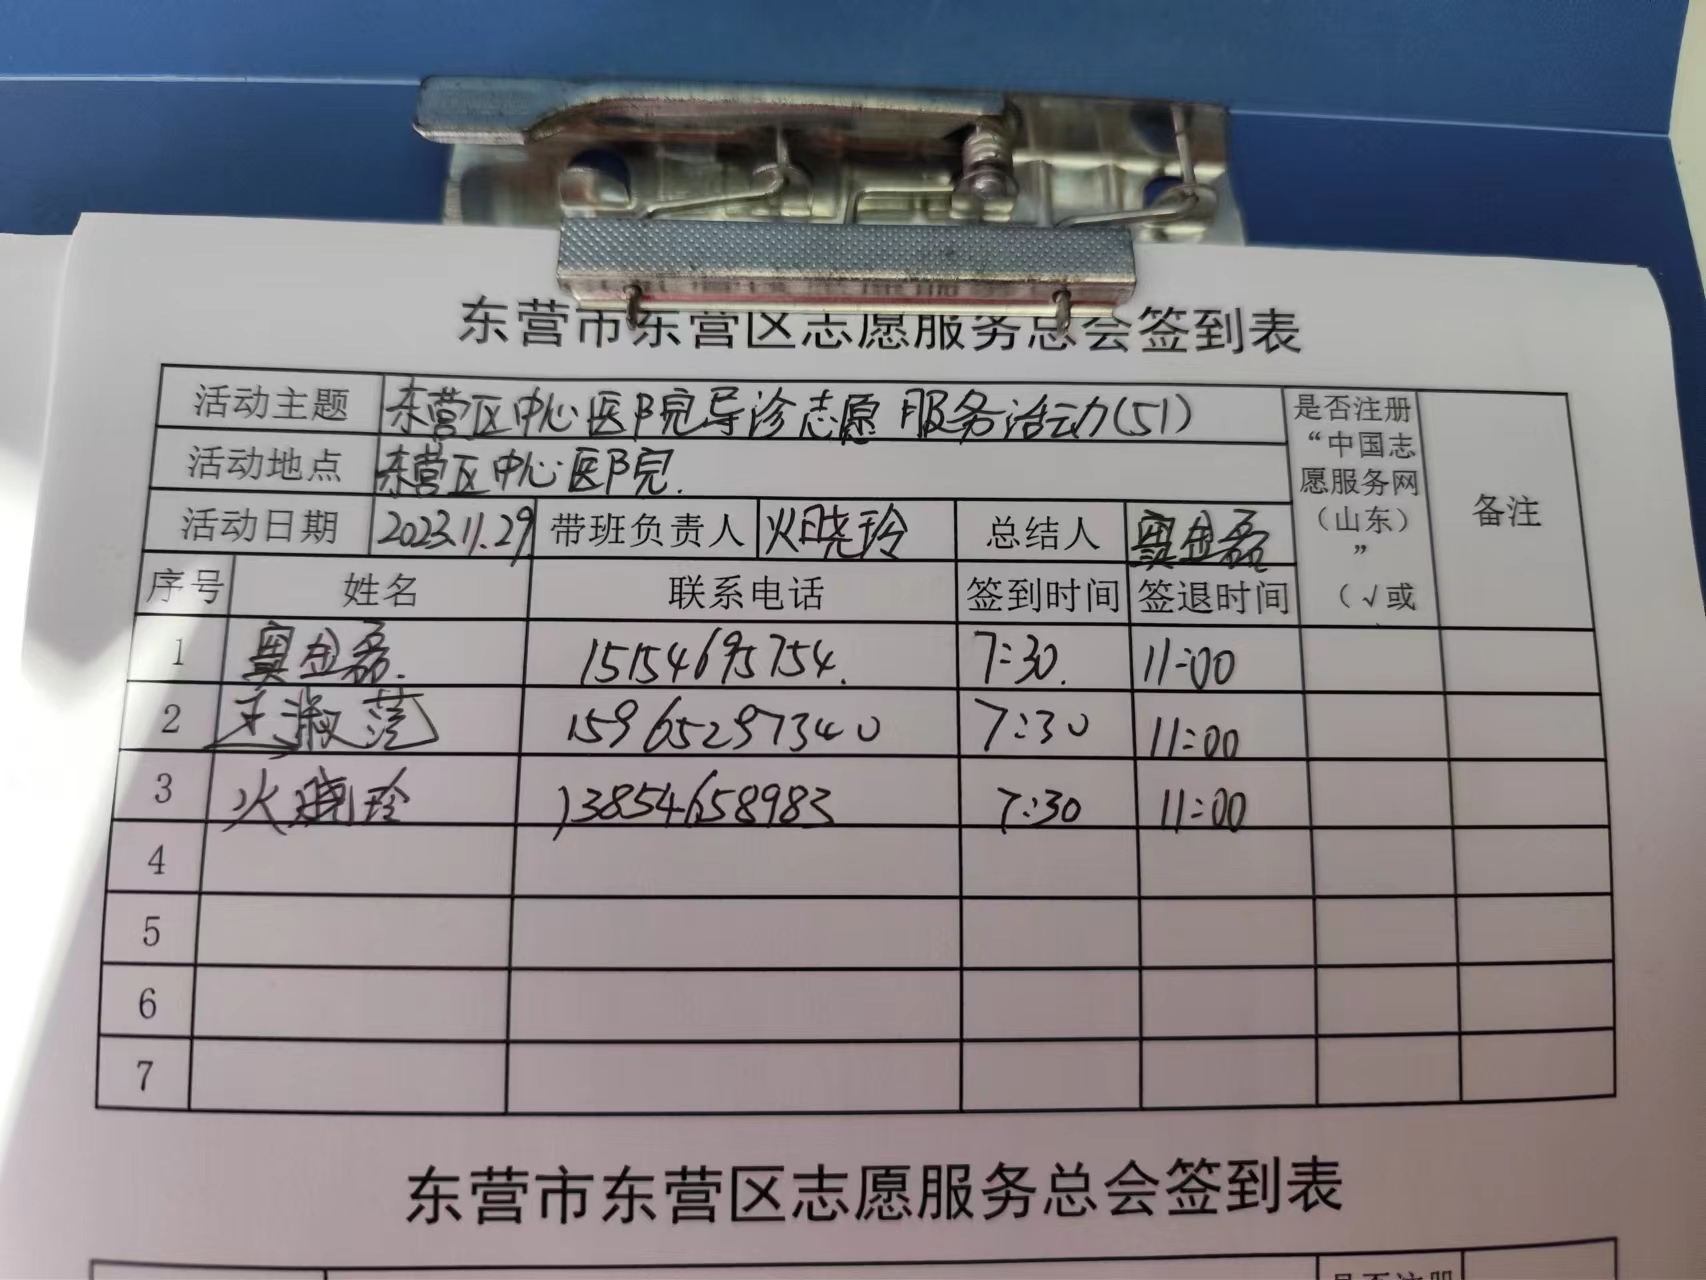 东营市东营区志愿服务总会签到表
活动主题 东营区中心医院导诊志愿服务活动(51) 是否注册“中国志愿服务网(山东)”(√或 备注
活动地点 东营区中心医院.
活动日期 2023.11.29 带班负责人 火晓玲 总结人
序号 姓名 联系电话 签到时间 签退时间
1 15154695754. 7:30. 11:00
2 王淑范 15965297340 7:30 11:00
3 火晓玲 13854658983 7:30 11:00
4
5
6
7
东营市东营区志愿服务总会签到表
是否注册